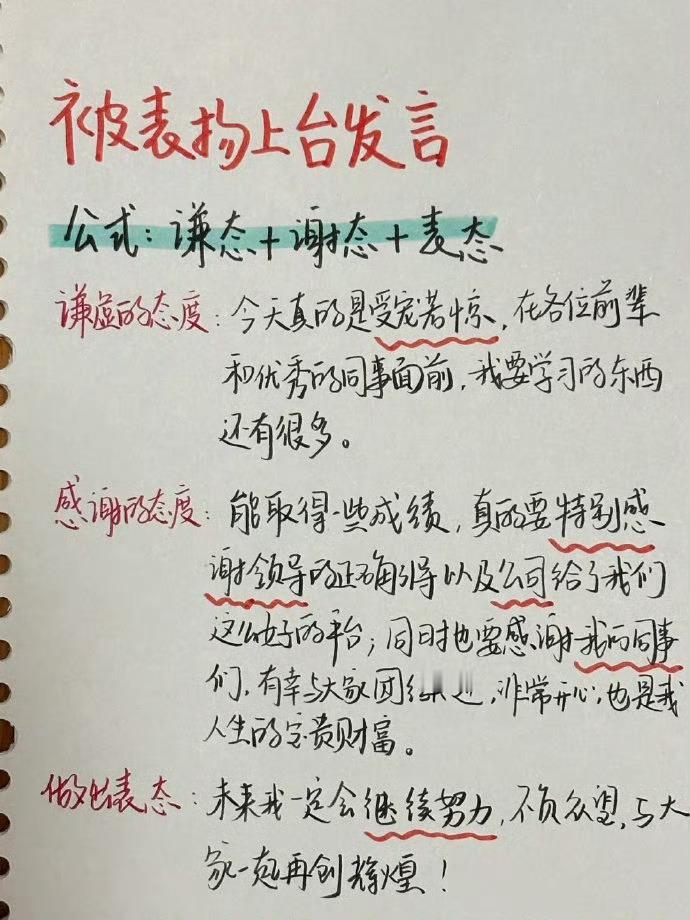 被表扬上台发言
公式：谦态+谢态+表态
谦虚的态度：今天真的是受宠若惊，在各位前辈
和优秀的同事面前，我要学习的东西
还有很多。
感谢的态度：能取得一些成绩，真的要特别感
谢领导的正确引导以及公司给了我们
这么好的平台；同时也要感谢我的同事
们，有幸与大家团，非常开心，也是我
人生的宝贵财富。
做出表态：未来我一定会继续努力，不负众望，与大
家一起再创辉煌！